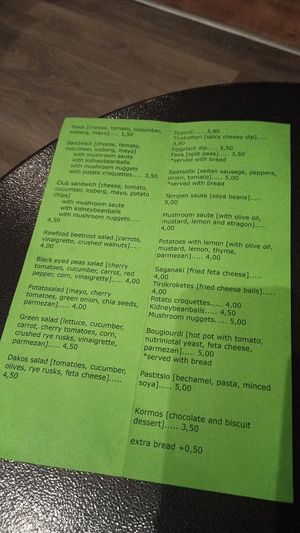 Toast [cheese, tomato, cucumber,
iceberg, mayo].... 1,50
Sandwich [cheese, tomato,
cucumber, iceberg, mayo]
with mushroom saute
with kidneybeanballs
with mushroom nuggets
with potato croquettes.... 3,50
Club sandwich [cheese, tomato,
cucumber, iceberg, mayo, potato
chips]
with mushroom saute
with kidneybeanballs
with mushroom nuggets.....
4,50
Rawfood beetroot salad [carrots,
vinaigrette, crushed walnuts]....
4,00
Black eyed peas salad [cherry
tomatoes, cucumber, carrot, red
pepper, corn, vinaigrette].... 4,00
Potatosalad [mayo, cherry
tomatoes, green onion, chia seeds,
parmezan].... 4,00
Green salad [lettuce, cucumber,
carrot, cherry tomatoes, corn,
crushed rye rusks, vinaigrette,
parmezan].... 4,50
Dakos salad [tomatoes, cucumber,
olives, rye rusks, feta cheese]....
4,50
Tzatziki..... 3,60
Tirokafteri [spicy cheesy dip]....
3,80
Eggplant dip.... 3,50
Fava [split peas].... 3,50
*served with bread
Spetsofai [seitan sausage, peppers,
onion, tomato]..... 5,00
*served with bread
Tempeh saute [soya beans].....
5,00
Mushroom saute [with olive oil,
mustard, lemon and etragon]....
4,00
Potatoes with lemon [with olive oil,
mustard, lemon, thyme,
parmezan].... 4,00
Saganaki [fried feta cheese].... 4,00
Tirokroketes [fried cheese balls]....
4,00
Potato croquettes.... 4,00
Kidneybeanballs.... 4,50
Mushroom nuggets..... 5,00
Bougiourdi [hot pot with tomato,
nutriniotal yeast, feta cheese,
parmezan]..... 5,00
*served with bread
Pastitsio [bechamel, pasta, minced
soya]..... 5,00
Kormos [chocolate and biscuit
dessert]..... 3,50
extra bread +0,50